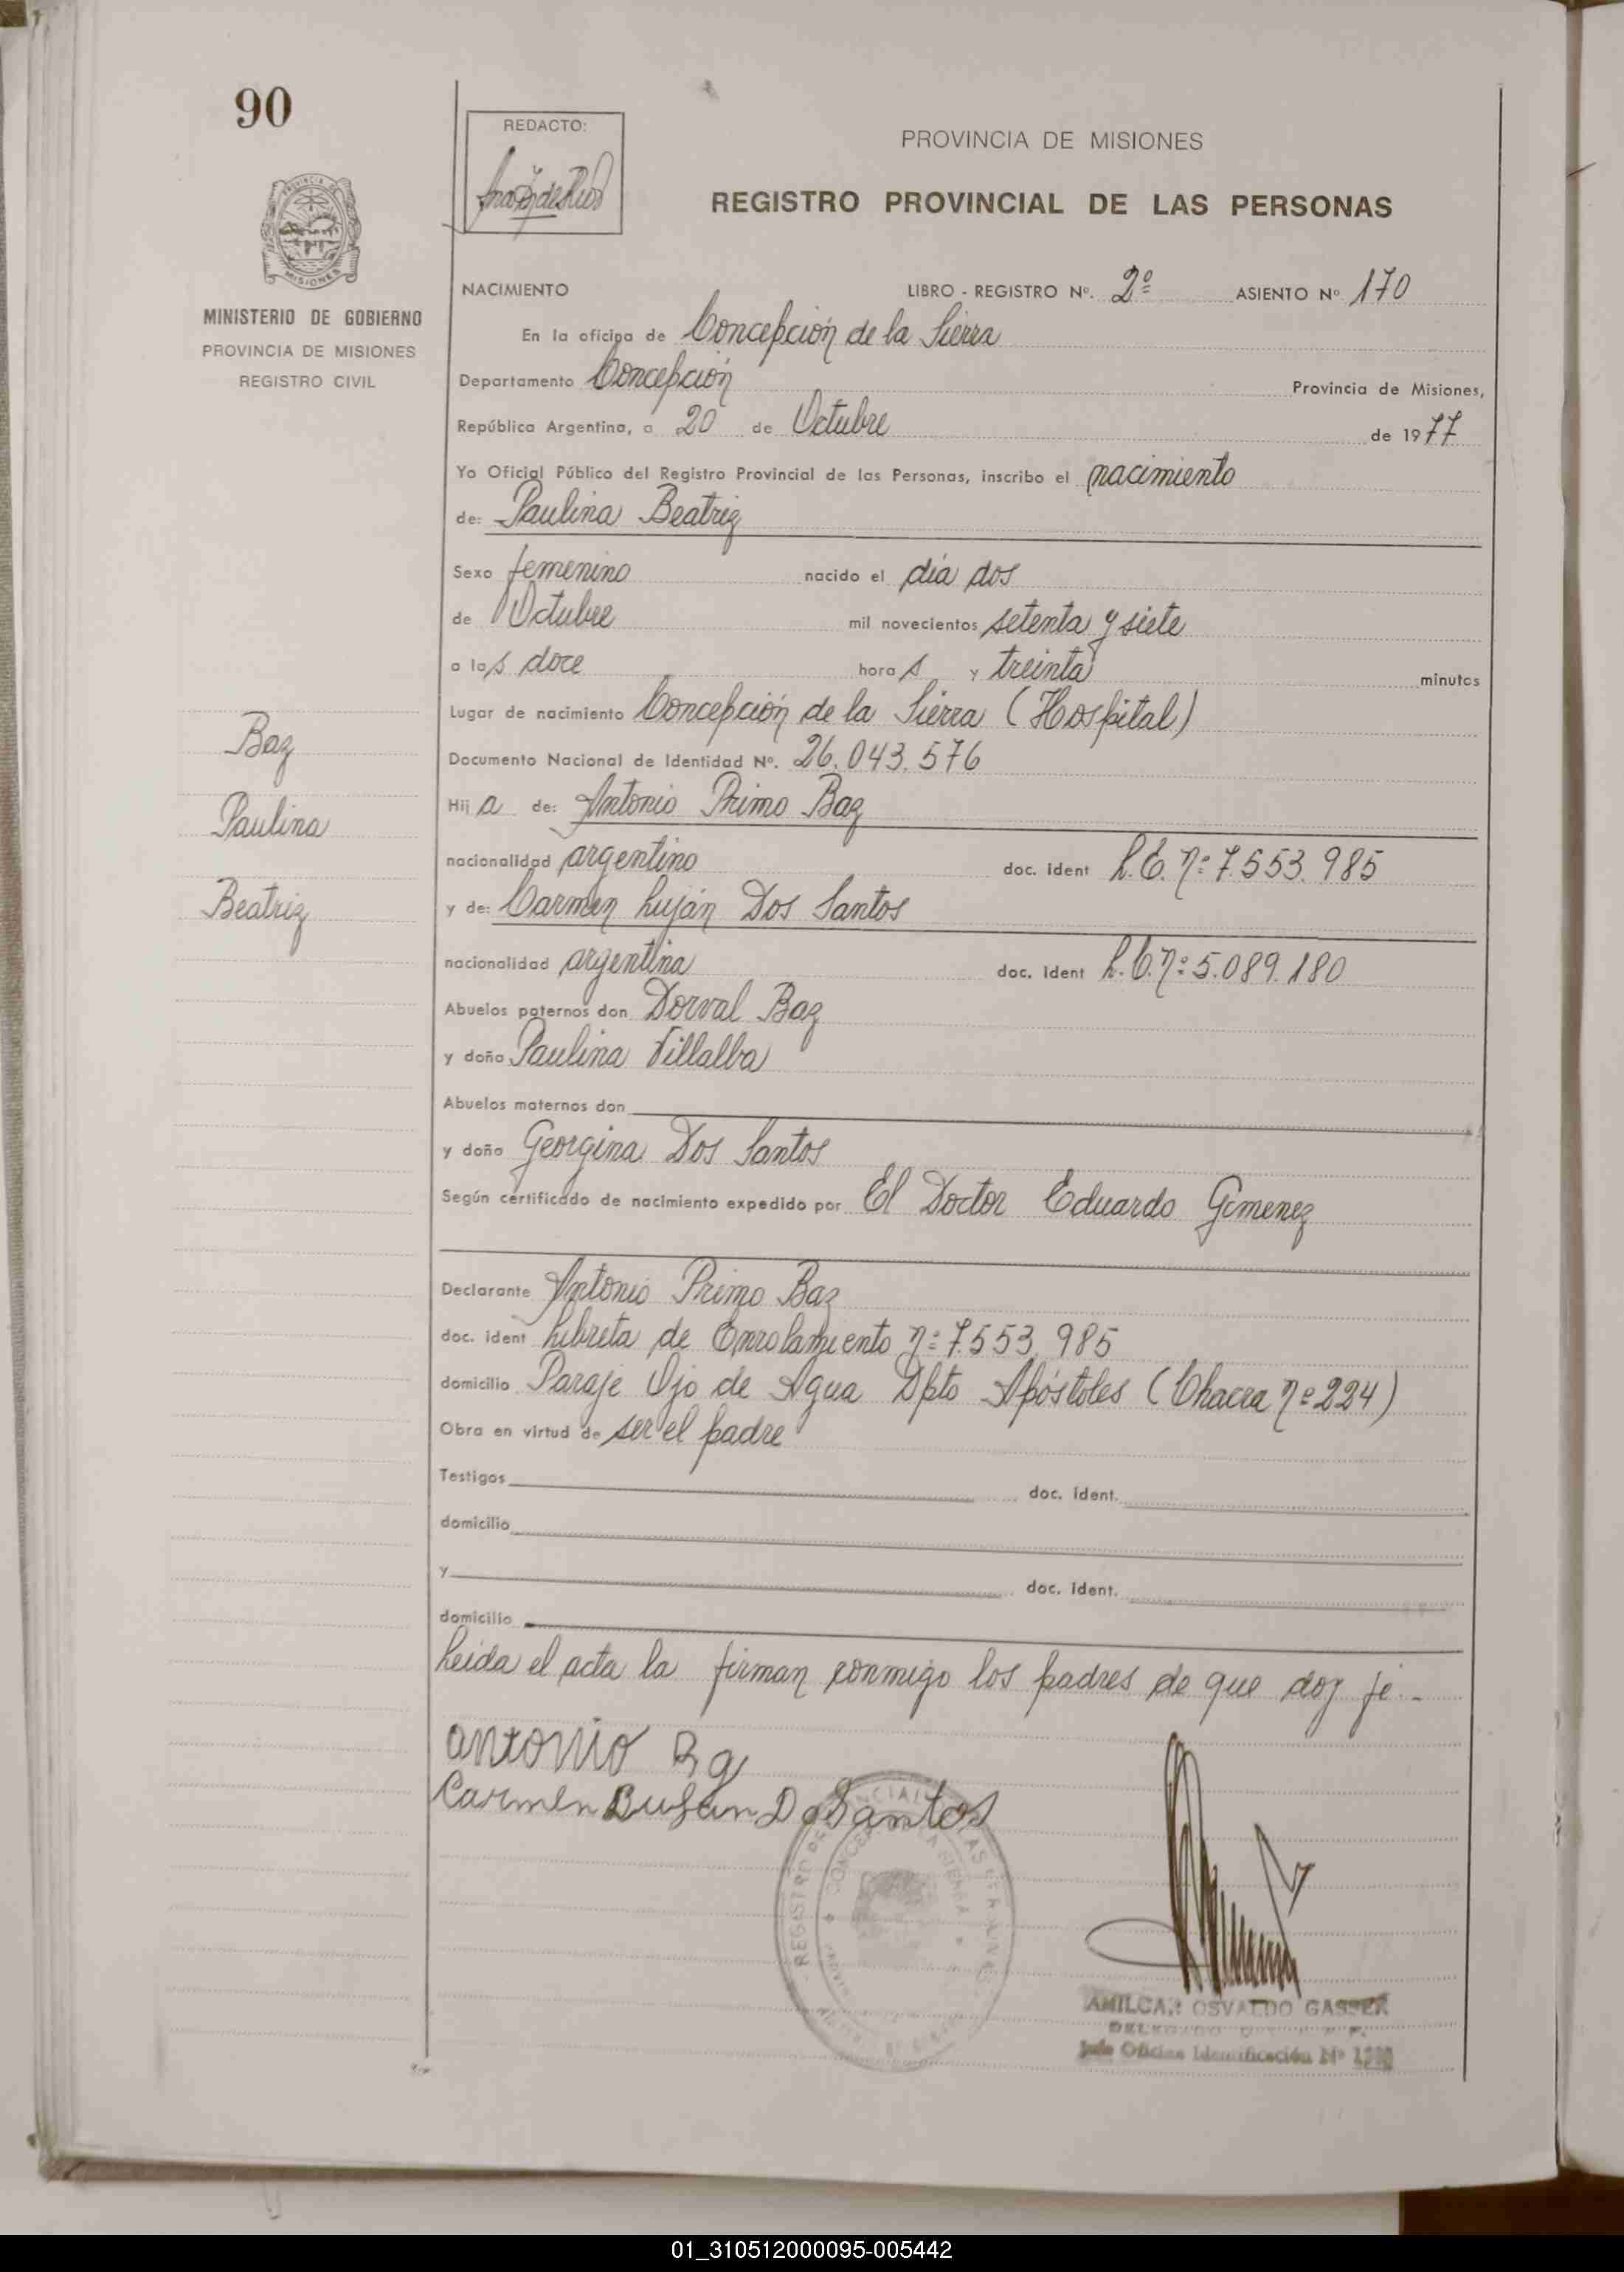 90
REDACTO:
PROVINCIA DE MISIONES
REGISTRO PROVINCIAL DE LAS PERSONAS
MISIONES
MINISTERIO DE GOBIERNO
PROVINCIA DE MISIONES
REGISTRO CIVIL
NACIMIENTO LIBRO - REGISTRO Nº. 2º ASIENTO Nº 170
En la oficina de Concepción de la Sierra
Departamento Concepción Provincia de Misiones,
República Argentina, a 20 de Octubre de 1977
Yo Oficial Público del Registro Provincial de las Personas, inscribo el nacimiento
de: Paulina Beatriz
Sexo femenino nacido el día dos
de Octubre mil novecientos setenta y siete
a las doce horas y treinta minutos
Lugar de nacimiento Concepción de la Sierra (Hospital)
Documento Nacional de Identidad Nº. 26.043.576
Hija de: Antonio Primo Baz
nacionalidad argentino doc. ident L.E. nº 7.553.985
y de: Carmen Luján Dos Santos
nacionalidad argentina doc. ident L.C. nº 5.089.180
Abuelos paternos don Dorval Baz
y doña Paulina Villalba
Abuelos maternos don
y doña Georgina Dos Santos
Según certificado de nacimiento expedido por El Doctor Eduardo Gimenez
Declarante Antonio Primo Baz
doc. ident Libreta de Enrolamiento nº 7.553.985
domicilio Paraje Ojo de Agua Dpto Apóstoles (Chacra nº 224)
Obra en virtud de ser el padre
Testigos doc. ident.
domicilio
y doc. ident.
domicilio
Leida el acta la firman conmigo los padres de que doy fé.-
Baz
Paulina
Beatriz
antonio
Carmen Santos
AMILCAR OSVALDO GASSER
Jefe Oficina Identificación Nº
01_310512000095-005442